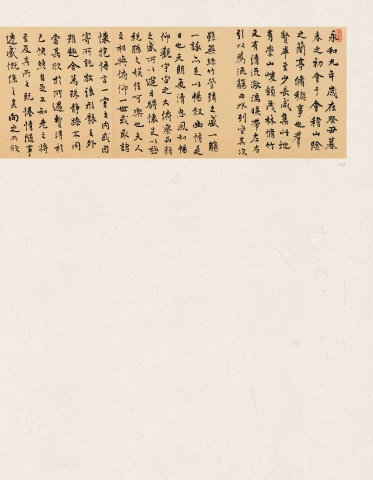 永和九年歲在癸丑暮
春之初會于會稽山陰
之蘭亭脩稧事也羣
賢畢至少長咸集此地
有崇山峻領茂林脩竹
又有清流激湍暎帶左右
引以為流觴曲水列坐其次
雖無絲竹管絃之盛一觴
一詠亦足以暢敘幽情是
日也天朗氣清惠風和暢
仰觀宇宙之大俯察品類
之盛所以遊目騁懷足以極
視聽之娛信可樂也夫人
之相與俯仰一世或取諸
懷抱悟言一室之內或因
寄所託放浪形骸之外
雖趣舍萬殊靜躁不同
當其欣於所遇暫得於
己怏然自足不知老之將
至及其所之既惓情隨事
遷感慨係之矣向之所欣